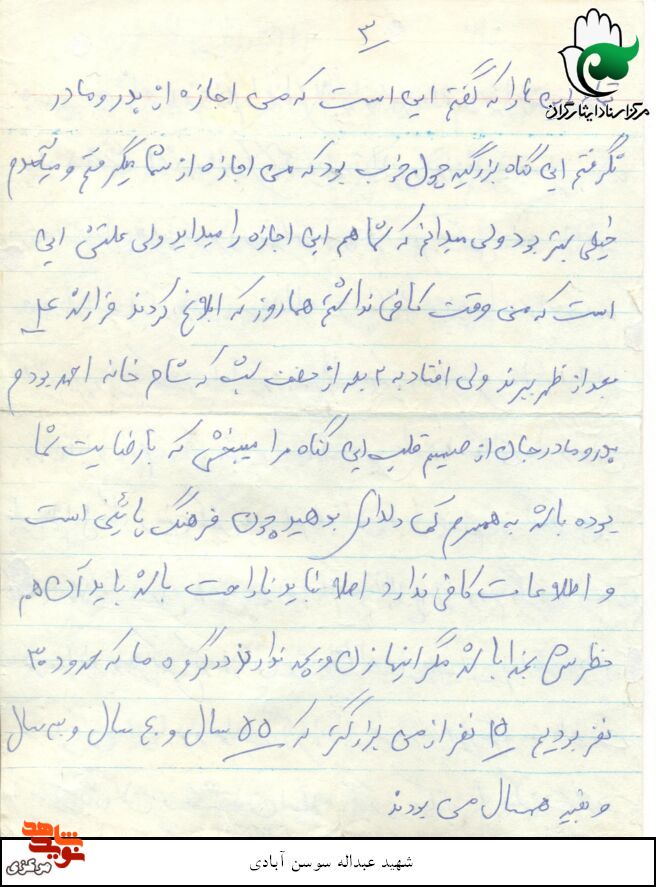 ۳
مرکز اسناد ایثارگران
این ها را که گفتم این است که من اجازه از پدر و مادر
نگرفتم این گناه بزرگیه چون خوب بود که من اجازه از شما میگرفتم و میآمدم
خیلی بهتر بود ولی میدانم که شما هم این اجازه را میداید ولی علتش این
است که من وقت کافی نداشتم همان روز که ابلاغ کردند قرار شد
بعد از ظهر ببرند ولی افتاد به ۲ بعد از نصف شب که شام خانه احمد بودم
پدر و مادر جان از صمیم قلب این گناه مرا میبخشی که با رضایت شما
بوده باشد به همسرم کمی دلداری بدهید چون فرهنگ پائینی است
و اطلاعات کافی ندارد اصلا نباید ناراحت باشد باید آن هم
نظرش بخدا باشد مگر اینها زن و بچه ندارند در گروه ما که حدود ۳۰
نفر بودیم ۱۵ نفر از من بزرگتر که ۵۵ سال و ۴۰ سال و سی سال
و بقیه همسال من بودند
نوید شاهد
مرکزی
شهید عبداله سوسن آبادی